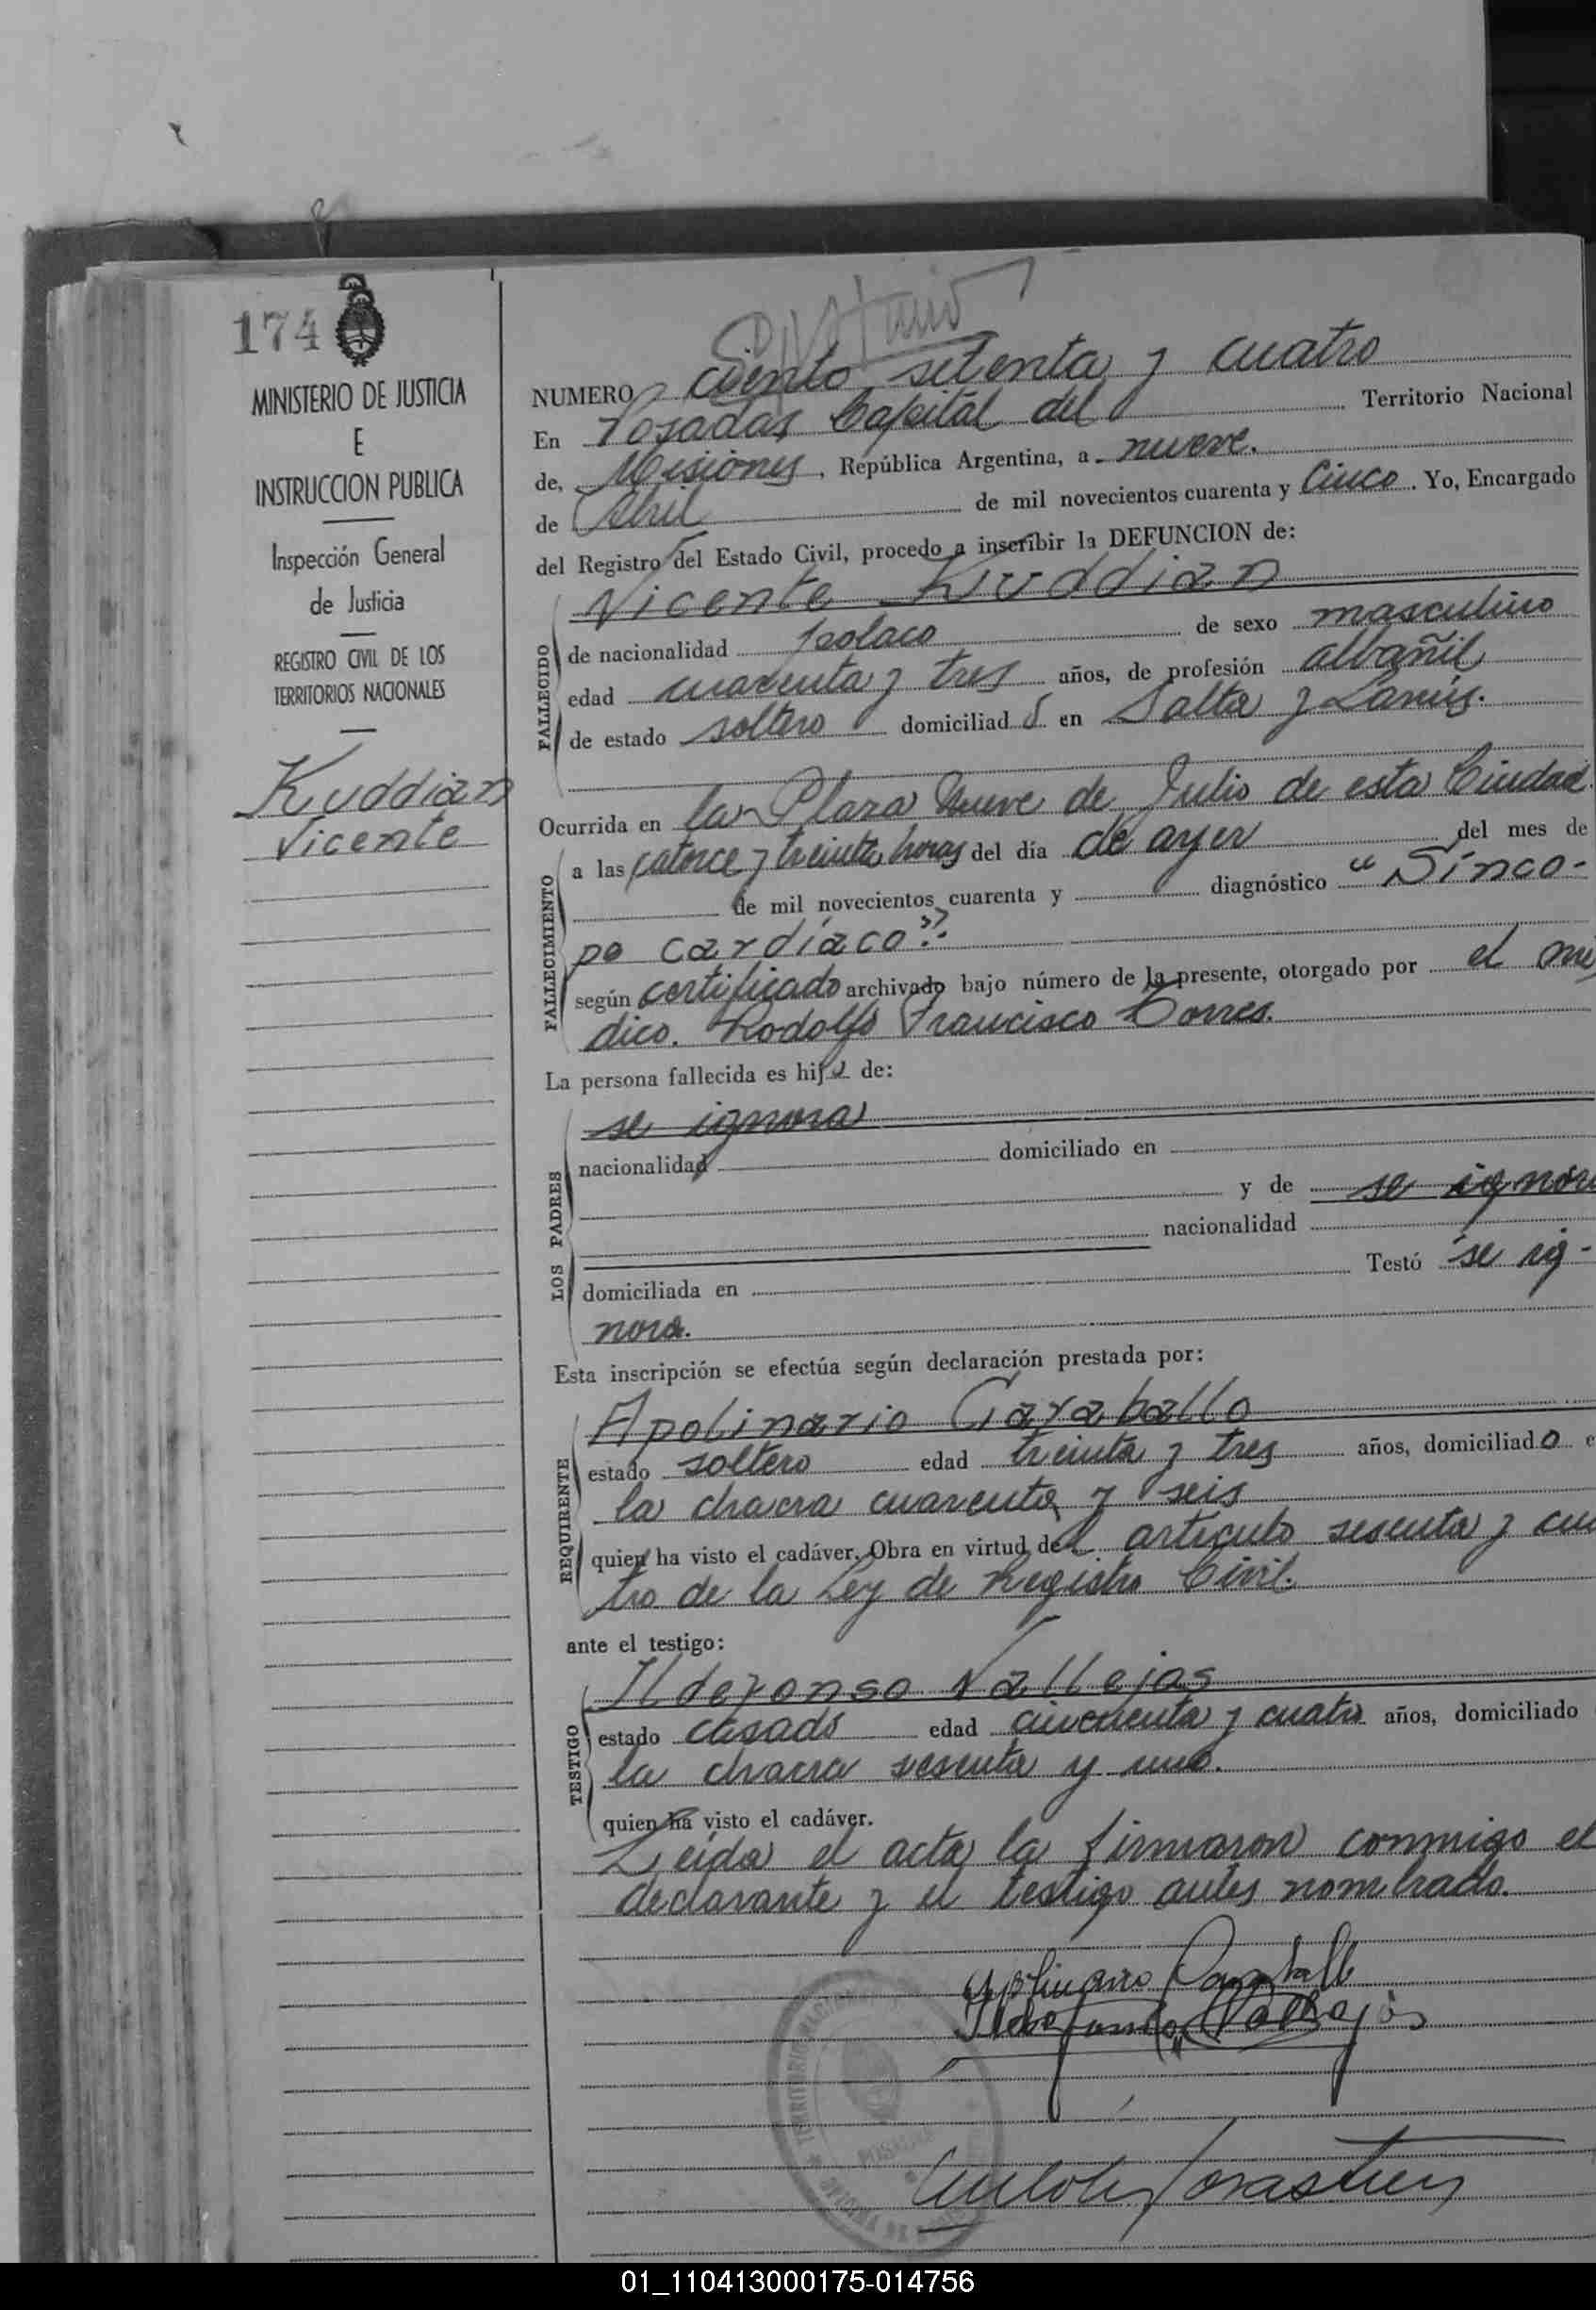 174
MINISTERIO DE JUSTICIA
E
INSTRUCCION PUBLICA
Inspección General
de Justicia
REGISTRO CIVIL DE LOS
TERRITORIOS NACIONALES
Kuddian
Vicente
NUMERO ciento setenta y cuatro
En Posadas Capital del Territorio Nacional
de, Misiones, República Argentina, a nueve.
de Abril de mil novecientos cuarenta y Cinco. Yo, Encargado
del Registro del Estado Civil, procedo a inscribir la DEFUNCION de:
FALLECIDO
Vicente Kuddian
de nacionalidad polaco de sexo masculino
edad cuarenta y tres años, de profesión albañil
de estado soltero domiciliado en Salta y Lanús.
Ocurrida en la Plaza Nueve de Julio de esta Ciudad.
FALLECIMIENTO
a las catorce y treinta horas del día de ayer del mes de
de mil novecientos cuarenta y diagnóstico "Sinco-
pe cardíaco".
según certificado archivado bajo número de la presente, otorgado por el mé
dico. Rodolfo Francisco Torres.
La persona fallecida es hijo de:
LOS PADRES
se ignora
nacionalidad domiciliado en
y de se ignora
nacionalidad
domiciliada en Testó se ig-
nora.
Esta inscripción se efectúa según declaración prestada por:
REQUIRENTE
Apolinario Caraballo
estado soltero edad treinta y tres años, domiciliado e
la chacra cuarenta y seis
quien ha visto el cadáver. Obra en virtud del artículo sesenta y cua
tro de la Ley de Registro Civil.
ante el testigo:
TESTIGO
Ildefonso Vallejas
estado casado edad cincuenta y cuatro años, domiciliado
la chacra sesenta y uno.
quien ha visto el cadáver.
Leída el acta la firmaron conmigo el
declarante y el testigo antes nombrado.
Apolinario Caraballo
Ildefonso Vallejos
01_110413000175-014756